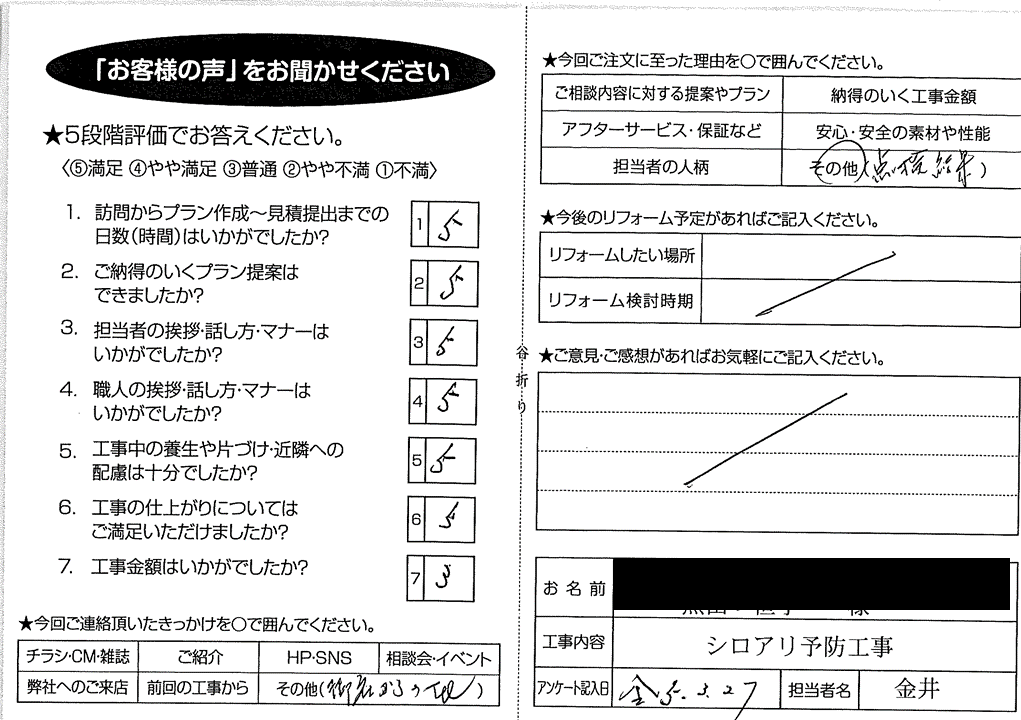 「お客様の声」をお聞かせください
★5段階評価でお答えください。
〈⑤満足 ④やや満足 ③普通 ②やや不満 ①不満〉
1. 訪問からプラン作成～見積提出までの
日数(時間)はいかがでしたか?
1 5
2. ご納得のいくプラン提案は
できましたか?
2 5
3. 担当者の挨拶・話し方・マナーは
いかがでしたか?
3 5
4. 職人の挨拶・話し方・マナーは
いかがでしたか?
4 5
5. 工事中の養生や片づけ・近隣への
配慮は十分でしたか?
5 5
6. 工事の仕上がりについては
ご満足いただけましたか?
6 5
7. 工事金額はいかがでしたか?
7 3
★今回ご連絡頂いたきっかけを○で囲んでください。
チラシ・CM・雑誌 ご紹介 HP・SNS 相談会・イベント
弊社へのご来店 前回の工事から その他( )
谷折り
★今回ご注文に至った理由を○で囲んでください。
ご相談内容に対する提案やプラン 納得のいく工事金額
アフターサービス・保証など 安心・安全の素材や性能
担当者の人柄 その他(点検結果)
★今後のリフォーム予定があればご記入ください。
リフォームしたい場所
リフォーム検討時期
★ご意見・ご感想があればお気軽にご記入ください。
お名前 様
工事内容 シロアリ予防工事
アンケート記入日 5.3.27 担当者名 金井